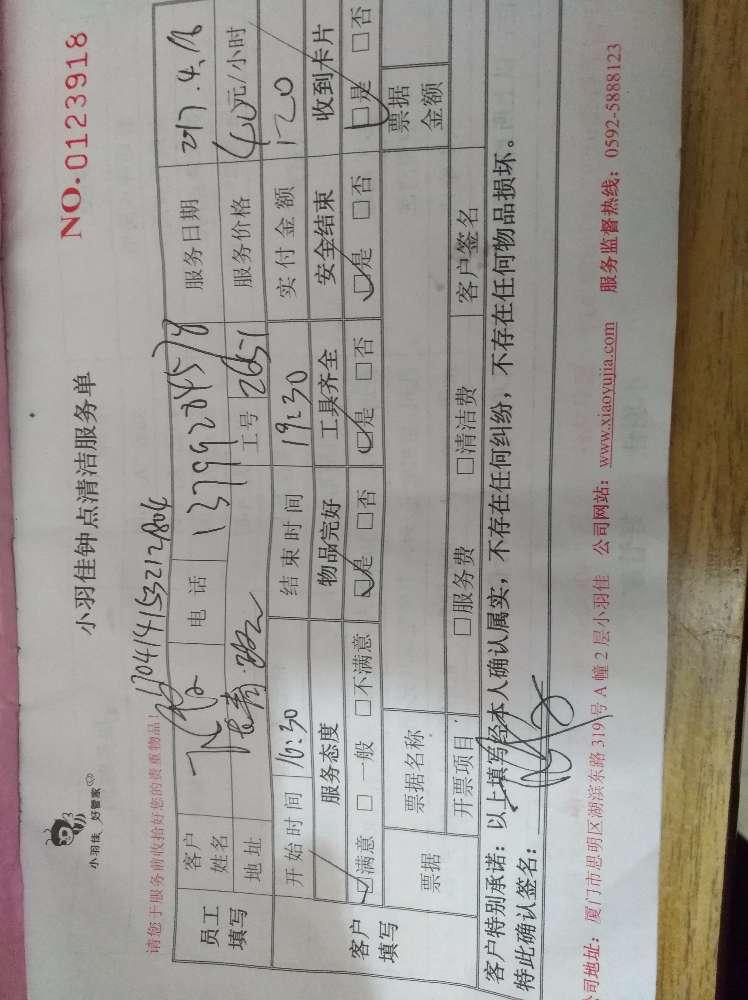 小羽佳 好管家
小羽佳钟点清洁服务单
NO.0123918
请您于服务前收拾好您的贵重物品!
170414153212804
员工填写
客户姓名
电话 13799284578
服务日期 2017.4.16
地址
工号 2651
服务价格 40元/小时
客户填写
开始时间 16:30
结束时间 19:30
实付金额 120
服务态度 物品完好 工具齐全 安全结束 收到卡片
☑满意 □一般 □不满意 ☑是 □否 ☑是 □否 ☑是 □否 ☑是 □否
票据 票据名称 票据金额
开票项目 □服务费 □清洁费 客户签名
客户特别承诺：以上填写经本人确认属实，不存在任何纠纷，不存在任何物品损坏。
特此确认签名：
公司地址：厦门市思明区湖滨东路319号A幢2层小羽佳 公司网站：www.xiaoyujia.com 服务监督热线：0592-5888123